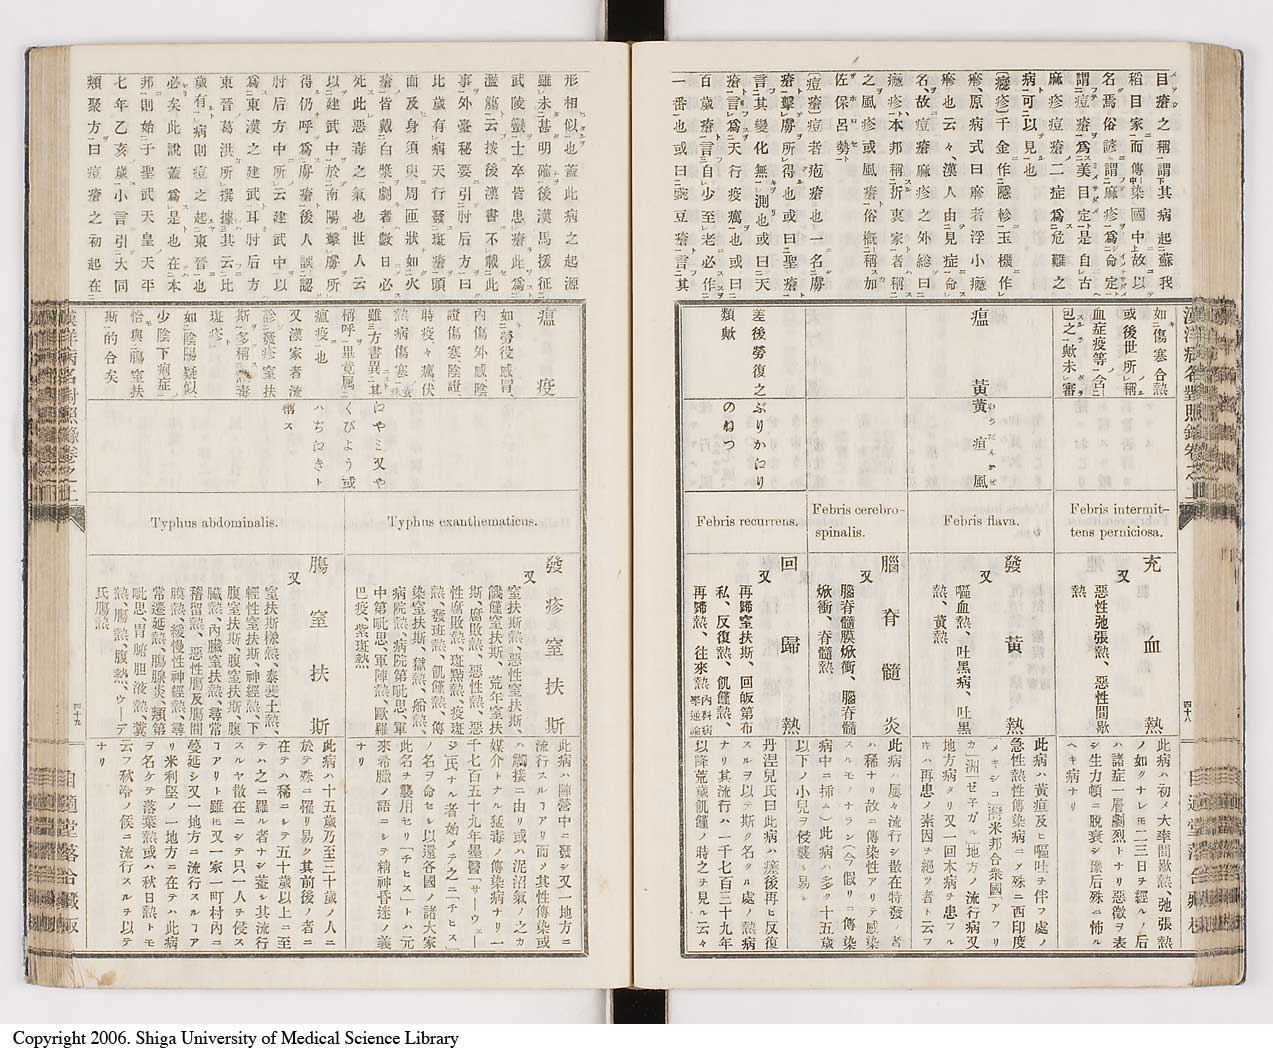 目瘡之稱謂其病起蘇我
稻目家而傳染國中故以
名焉俗諺謂麻疹爲命定
謂痘瘡爲美目定是自古
麻疹痘瘡二症爲危難之
病可以見也
(癮疹)千金作隱軫玉機作
㾦疹原病式曰㾦者浮小癮
疹也云々漢人由見症命
名故痘瘡麻疹之外總曰
癮疹本邦稱折衷家者稱
之風疹或風瘡俗概稱加
佐保呂勢
(痘瘡)痘者疱瘡也一名虜
瘡擊虜所得也或曰聖瘡
言其變化無測也或曰天
瘡言爲天行疫癘也或曰
百歲瘡言自少至老必作
一番也或曰豌豆瘡言其
如傷寒合熱
或後世所稱
血症疫等合
包之歟未審
Febris intermit-
tens perniciosa.
充血熱
又
惡性弛張熱、惡性間歇
熱
此病ハ初メ大率間歇熱、弛張熱
ノ如クナレモ二三日チ經ルノ后
ハ諸症一層劇烈トナリ惡徵ヲ表
シ生力頓ニ脫衰シ豫后殊ニ怖ル
ヘキ病ナリ
瘟黃
黃疸風
Febris flava.
發黃熱
又
嘔血熱、吐黑病、吐黑
熱、黃熱
此病ハ黃疸及ヒ嘔吐チ伴フ處ノ
急性熱性傳染病ニメ殊ニ西印度
Febris cerebro-
spinalis.
腦脊髓炎
又
腦脊髓膜焮衝、腦脊髓
焮衝、脊髓熱
此病ハ屢々流行シ散在特發ノ者
ハ稀ナリ故ニ傳染性アリテ感染
スルモノナラン(今假リニ傳染
病中ニ挿ム)此病ハ多ク十五歲
以下ノ小兒ヲ侵襲シ易シ
差後勞復之
類歟
ぶりかにり
のねつ
Febris recurrens.
回歸熱
又
再歸窒扶斯、回皈第布
私、反復熱、飢饉熱、
再歸熱、往來熱
丹涅兒氏曰此病ハ瘥後再ヒ反復
スルヲ以テ斯ク名クル處ノ熱病
ナリ其流行ハ一千七百三十九年
以降荒歲飢饉ノ時之チ見ル云々
漢洋病名對照錄卷之上
四十八
形相似也蓋此病之起源
雖未甚明確後漢馬援征
武陵蠻士卒皆患瘡此爲
濫觴云按後漢書不載此
事外臺秘要引肘后方曰
比歲有病天行發斑瘡頭
面及身須臾周匝狀如火
瘡皆戴白漿劇者數日必
死此惡毒之氣也世人云
以建武中於南陽擊虜所
得仍呼爲虜瘡後人誤認
肘后方中所云建武中以
爲東漢之建武耳肘后方
東晉葛洪所撰據其云比
歲有病則痘之起東晉也
必矣此說蓋爲是也在本
邦則始于聖武天皇天平
七年乙亥歲小言引大同
類聚方曰痘瘡之初起在
瘟疫
如勞役感冒
內傷外感陰
證傷寒陰證
時疫々癘伏
熱病傷寒
雖方書異其
稱呼畢竟属
瘟疫也
又漢家者流
診發疹室扶
斯多稱熱毒
斑疹
如陰陽疑似
少陰下痢症
恰與腸室扶
斯的合矣
にやミ又や
くびよう或
ハぢにきト
稱ス
Typhus exanthematicus.
發疹窒扶斯
又
窒扶斯熱、惡性窒扶斯、
饑饉窒扶斯、荒年窒扶
斯、腐敗熱、惡性熱、惡
性腐敗熱、斑點熱、疫斑
熱、發斑熱、飢饉熱、傳
染窒扶斯、獄熱、船熱、
病院熱、病院第吡思、軍
中第吡思、軍陣熱、歐羅
巴疫、紫斑熱
此病ハ陣營中ニ發シ又一地方ニ
流行スルヿアリ而メ其性傳染或
ハ觸接ニ由リ或ハ泥沼氣ノ之カ
媒介トナル猛毒ノ傳染病ナリ一
千七百五十九年墨醫「サーウェー
ジ」氏ナル者始メテ之ニ「チヒス」
ノ名ヲ命セシ以還各國ノ諸大家
此名チ襲用セリ「チヒス」トハ元
來希臘ノ語ニシテ精神昏迷ノ義
ナリ
Typhus abdominalis.
腸窒扶斯
又
窒扶斯樣熱、泰斐士熱、
輕性窒扶斯、神經熱、下
腹窒扶斯、腹窒扶斯、腹
臟熱、內臟窒扶熱、尋常
稽留熱、惡性腸及腸間
膜熱、緩慢性神經熱、尋
常遷延熱、腸腺炎、類第
吡思、胃腑胆液熱、糞
熱、腸熱、腹熱、ウーデ
氏腸熱
此病ハ十五歲乃至三十歲ノ人ニ
於テ殊ニ罹リ易ク其前後ノ者ニ
在テハ稀ニシテ五十歲以上ニ至
テハ之ニ羅ル者ナシ蓋シ其流行
スルヤ散在ニシテ只一人チ侵ス
ヿアリト雖モ又一家一町村內ニ
蔓延シ又一地方ニ流行スルヿア
リ米利堅ノ一地方ニ在テハ此病
ヲ名ケテ落葉熱或ハ秋日熱トモ
云フ秋冷ノ候ニ流行スルチ以テ
ナリ
漢洋病名對照錄卷之上
四十九
Copyright 2006. Shiga University of Medical Science Library